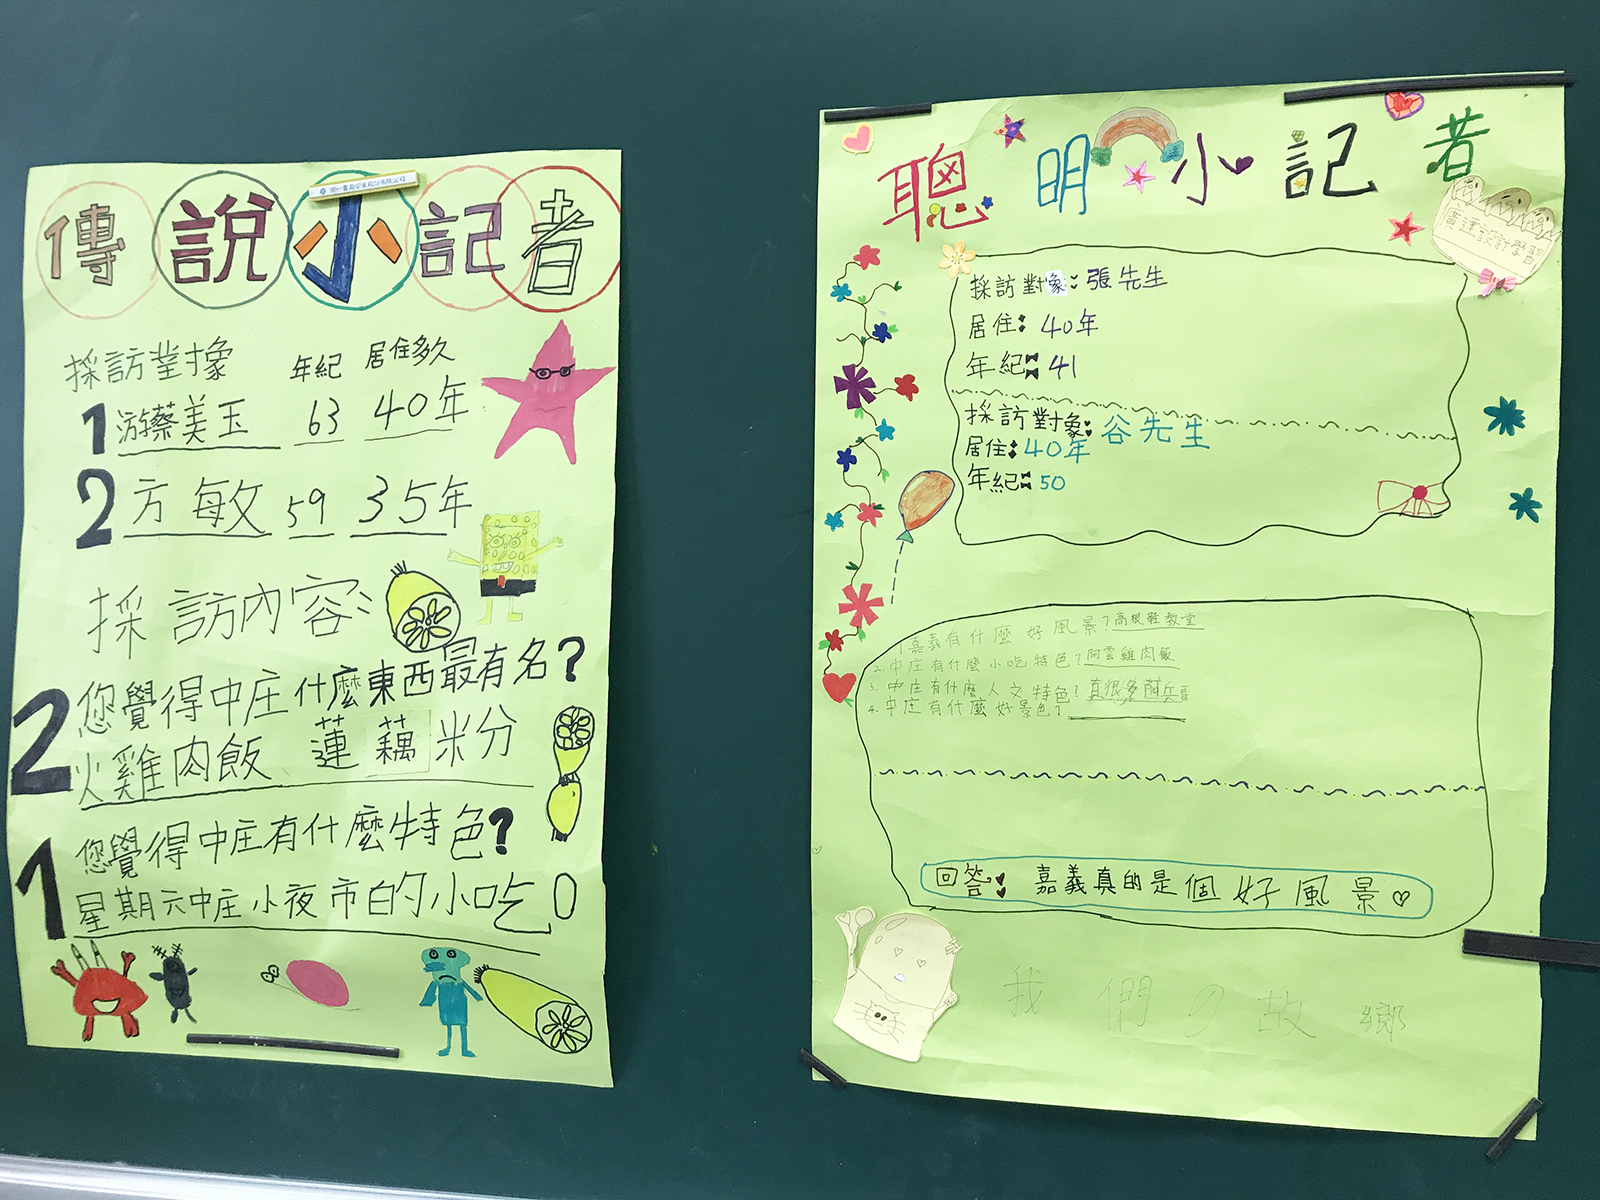 傳說小記者
採訪對象 年紀 居住多久
1 游蔡美玉 63 40年
2 方敏 59 35年
採訪內容:
2 您覺得中庄什麼東西最有名?
火雞肉飯 蓮藕米分
1 您覺得中庄有什麼特色?
星期六中庄小夜市的小吃
聰明小記者
採訪對象:張先生
居住:40年
年紀:41
採訪對象:谷先生
居住:40年
年紀:50
1.嘉義有什麼好風景?高根鞋教堂
2.中庄有什麼小吃特色?阿雲雞肉飯
3.中庄有什麼人文特色?真很多阿兵哥
4.中庄有什麼好景色?
回答:嘉義真的是個好風景
我們の故鄉